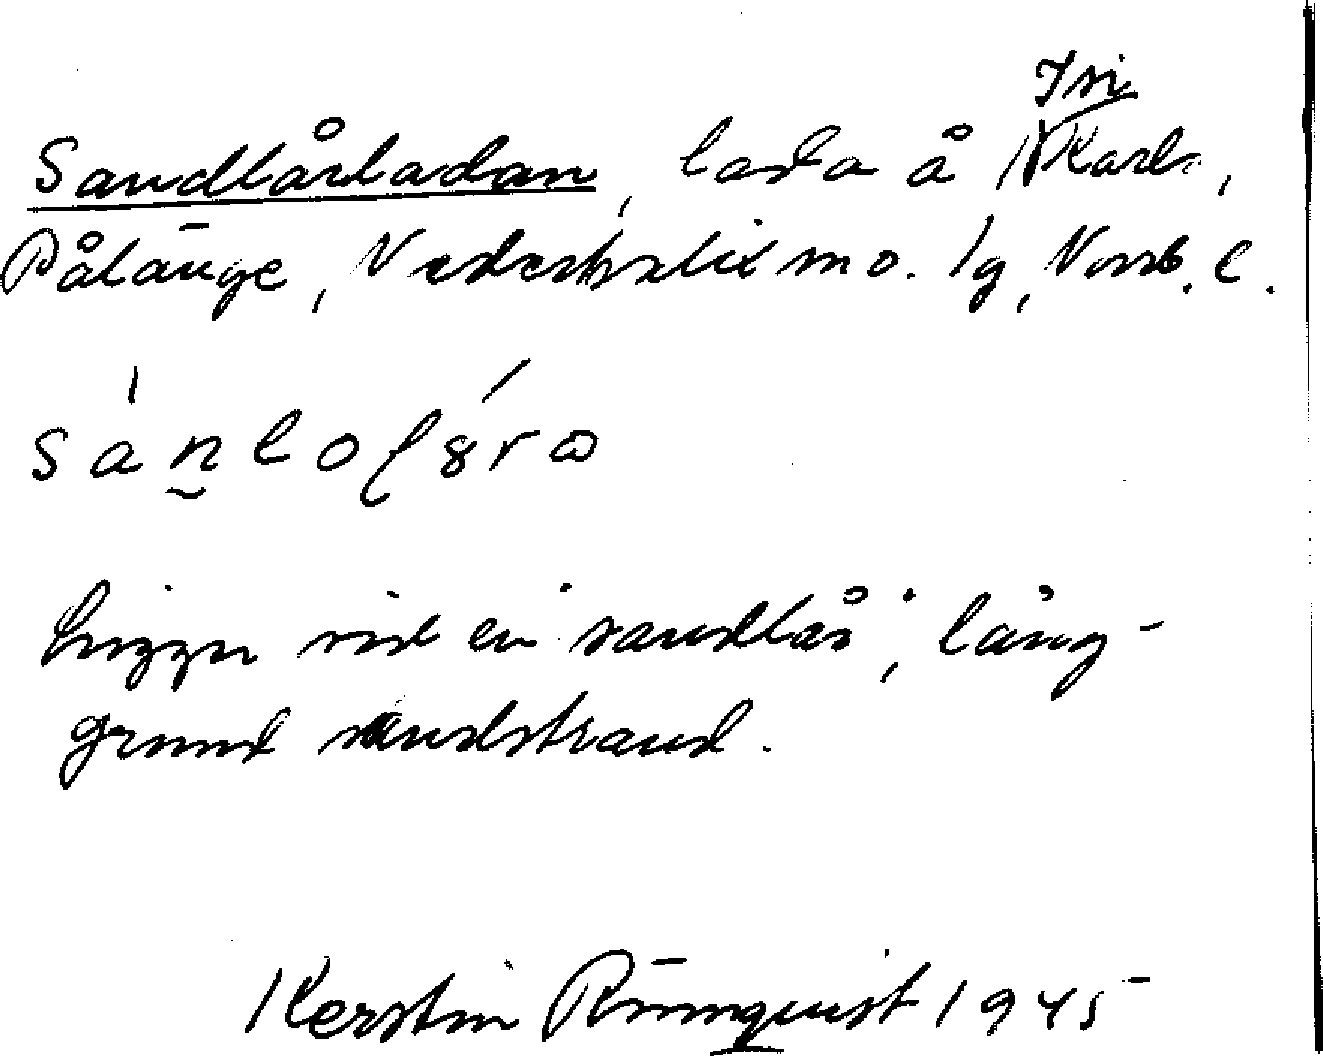 Isi
Sandlårladan, lada å Karls,
Pålänge, Nederkalix sn o. lg, Norrb. l.
sánlolárα
Ligger vid en sandlås; lång-
grund sandstrand.
Kerstin Rönnquist 1945